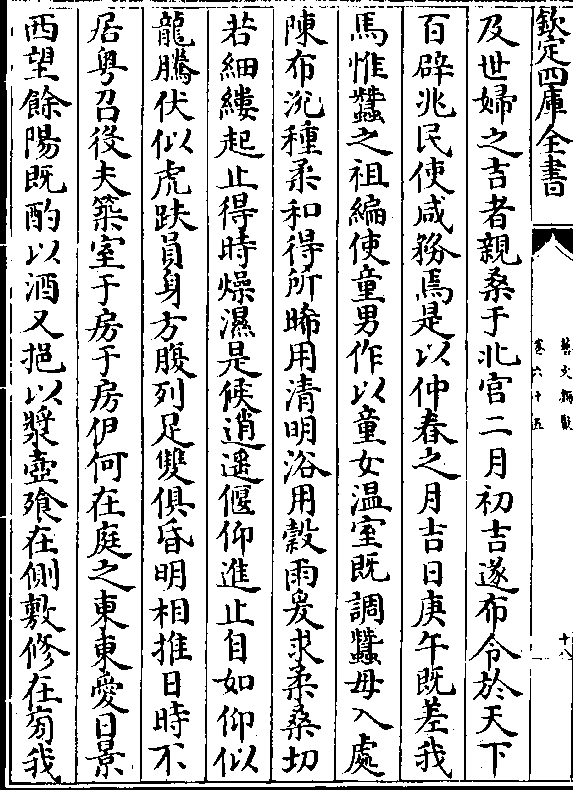 欽定四庫全書
藝文類聚
卷六十五
十八
及世婦之吉者親桑于北宫二月初吉遂布令於天下
百辟兆民使咸務焉是以仲春之月吉日庚午既差我
馬惟蠶之祖編使童男作以童女温室既調蠶母入處
陳布沉種柔和得所晞用清明浴用穀雨爰求柔桑切
若細縷起止得時燥濕是候逍遥偃仰進止自如仰似
龍騰伏似虎趺員身方腹列足雙俱昏明相推日時不
居粤召役夫築室于房于房伊何在庭之東東愛日景
西望餘陽既酌以酒又挹以漿壺飱在側敷修在㫄我